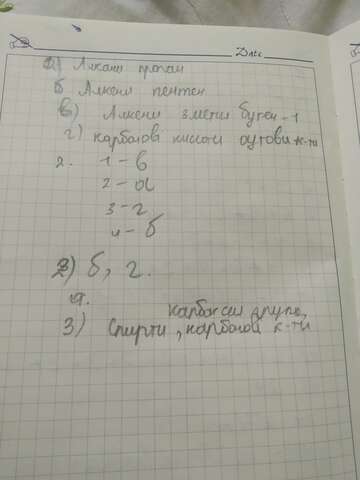 Date
а) Алкани пропан
б Алкени пентен
в) Алкени 2метил бутен-1
г) карбонов кислоти оцтови к-ти
2. 1-в
2-а
3-г
4-б
2) б, г.
карбоксил группа,
3) Спирти, карбонові к-ти